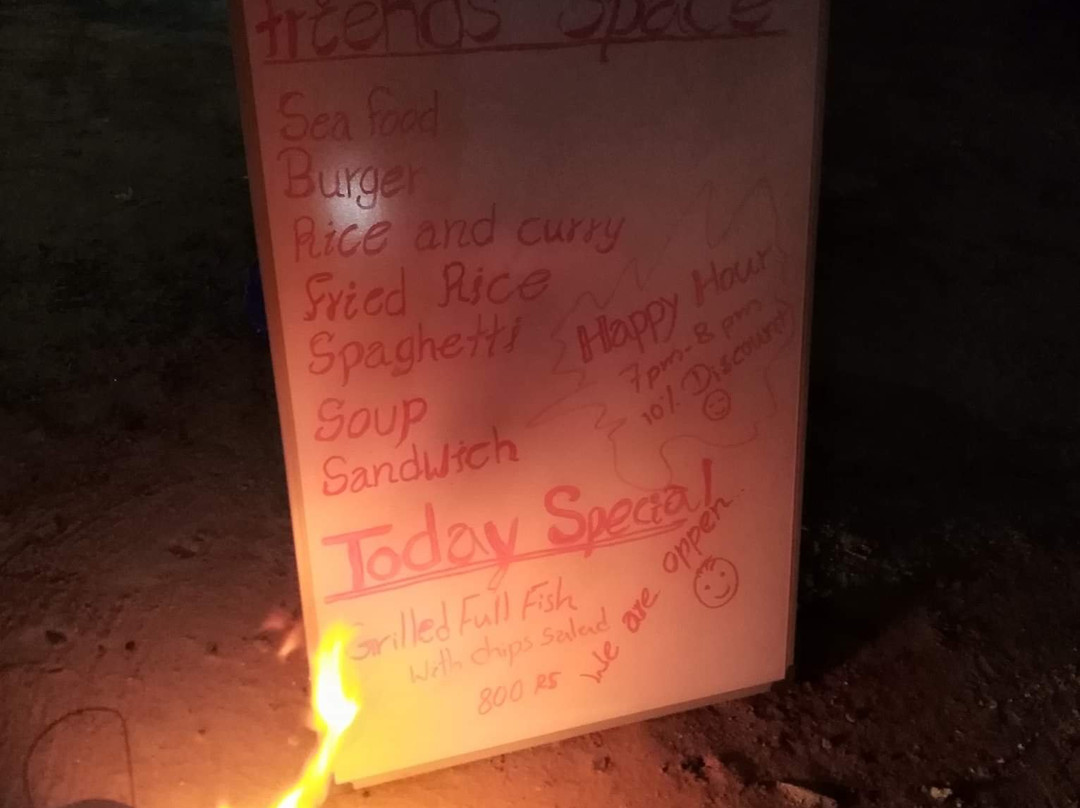 friends Space
Sea food
Burger
Rice and curry
Fried Rice
Spaghetti
Soup
Sandwich
Happy Hour
7pm-8 pm
10% Discount
Today Special
Grilled Full Fish
With chips Salad
800 RS
We are oppen